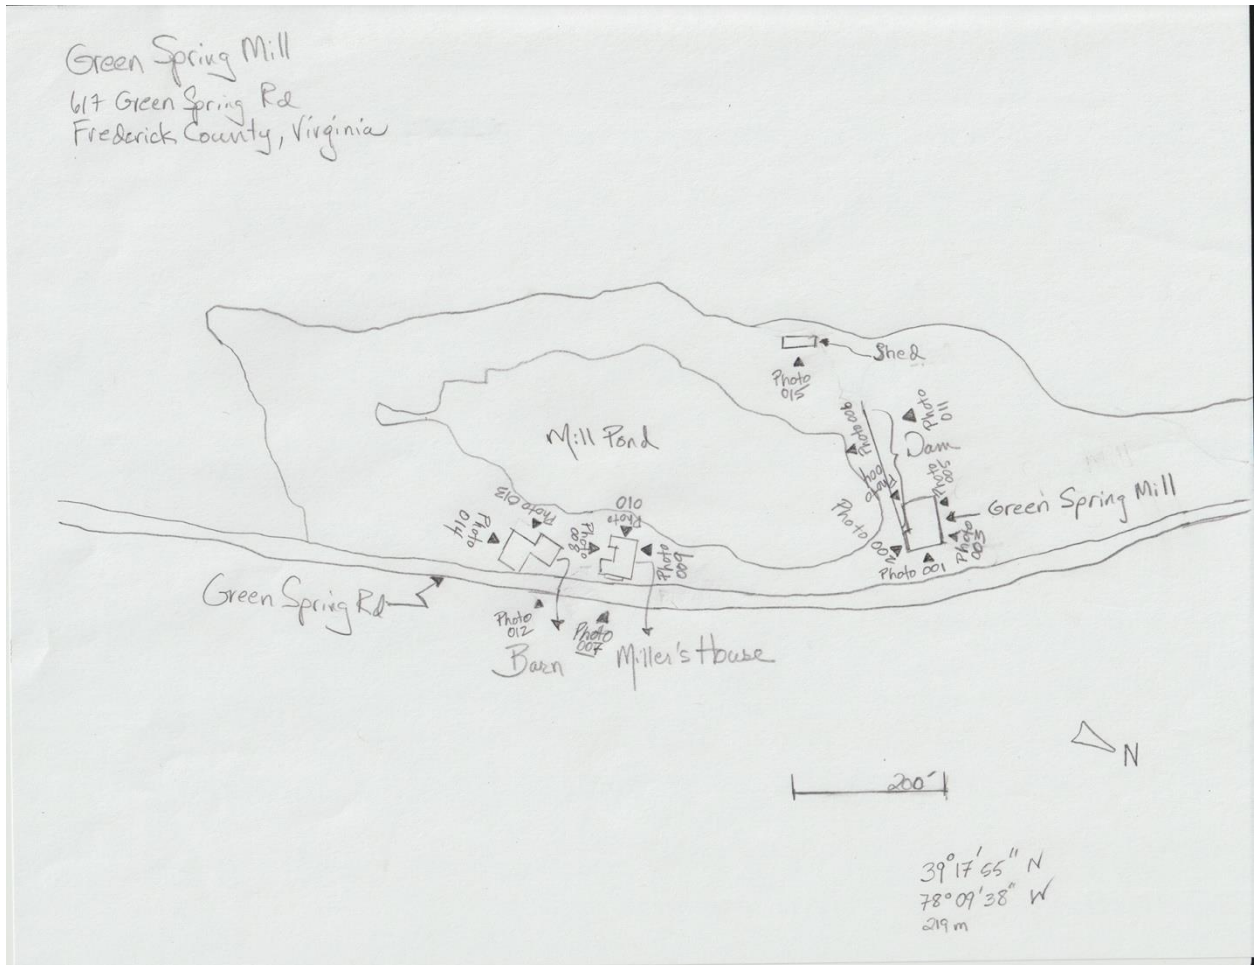 Green Spring Mill
617 Green Spring Rd
Frederick County, Virginia
Shed
Photo
015
Photo 006
Photo
011
Dam
Mill Pond
Photo
004
Photo
005
Green Spring Mill
Photo
002
Photo 001
Photo
003
Photo 013
Photo
014
010
Photo
Photo
008
Photo
009
Green Spring Rd
Photo
012
Photo
007
Barn
Miller's House
N
200'
39°17'55" N
78°09'38" W
219 m